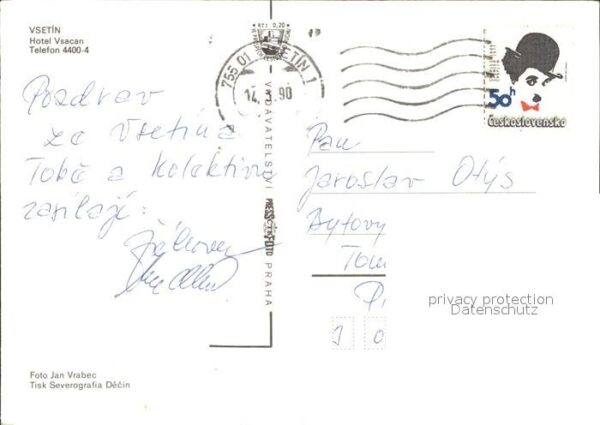 VSETÍN
Hotel Vsacan
Telefon 4400-4
Pozdrav
ze Vsetína
Tobě a kolektivu
zasílají:
Foto Jan Vrabec
Tisk Severografia Děčín
VYDAVATELSTVÍ PRESSFOTO PRAHA
755 01 VSETÍN 1
14.3.90
50h
Československo
Pan
Jaroslav Otýs
Bytový
Tom
P
J 0
privacy protection
Datenschutz